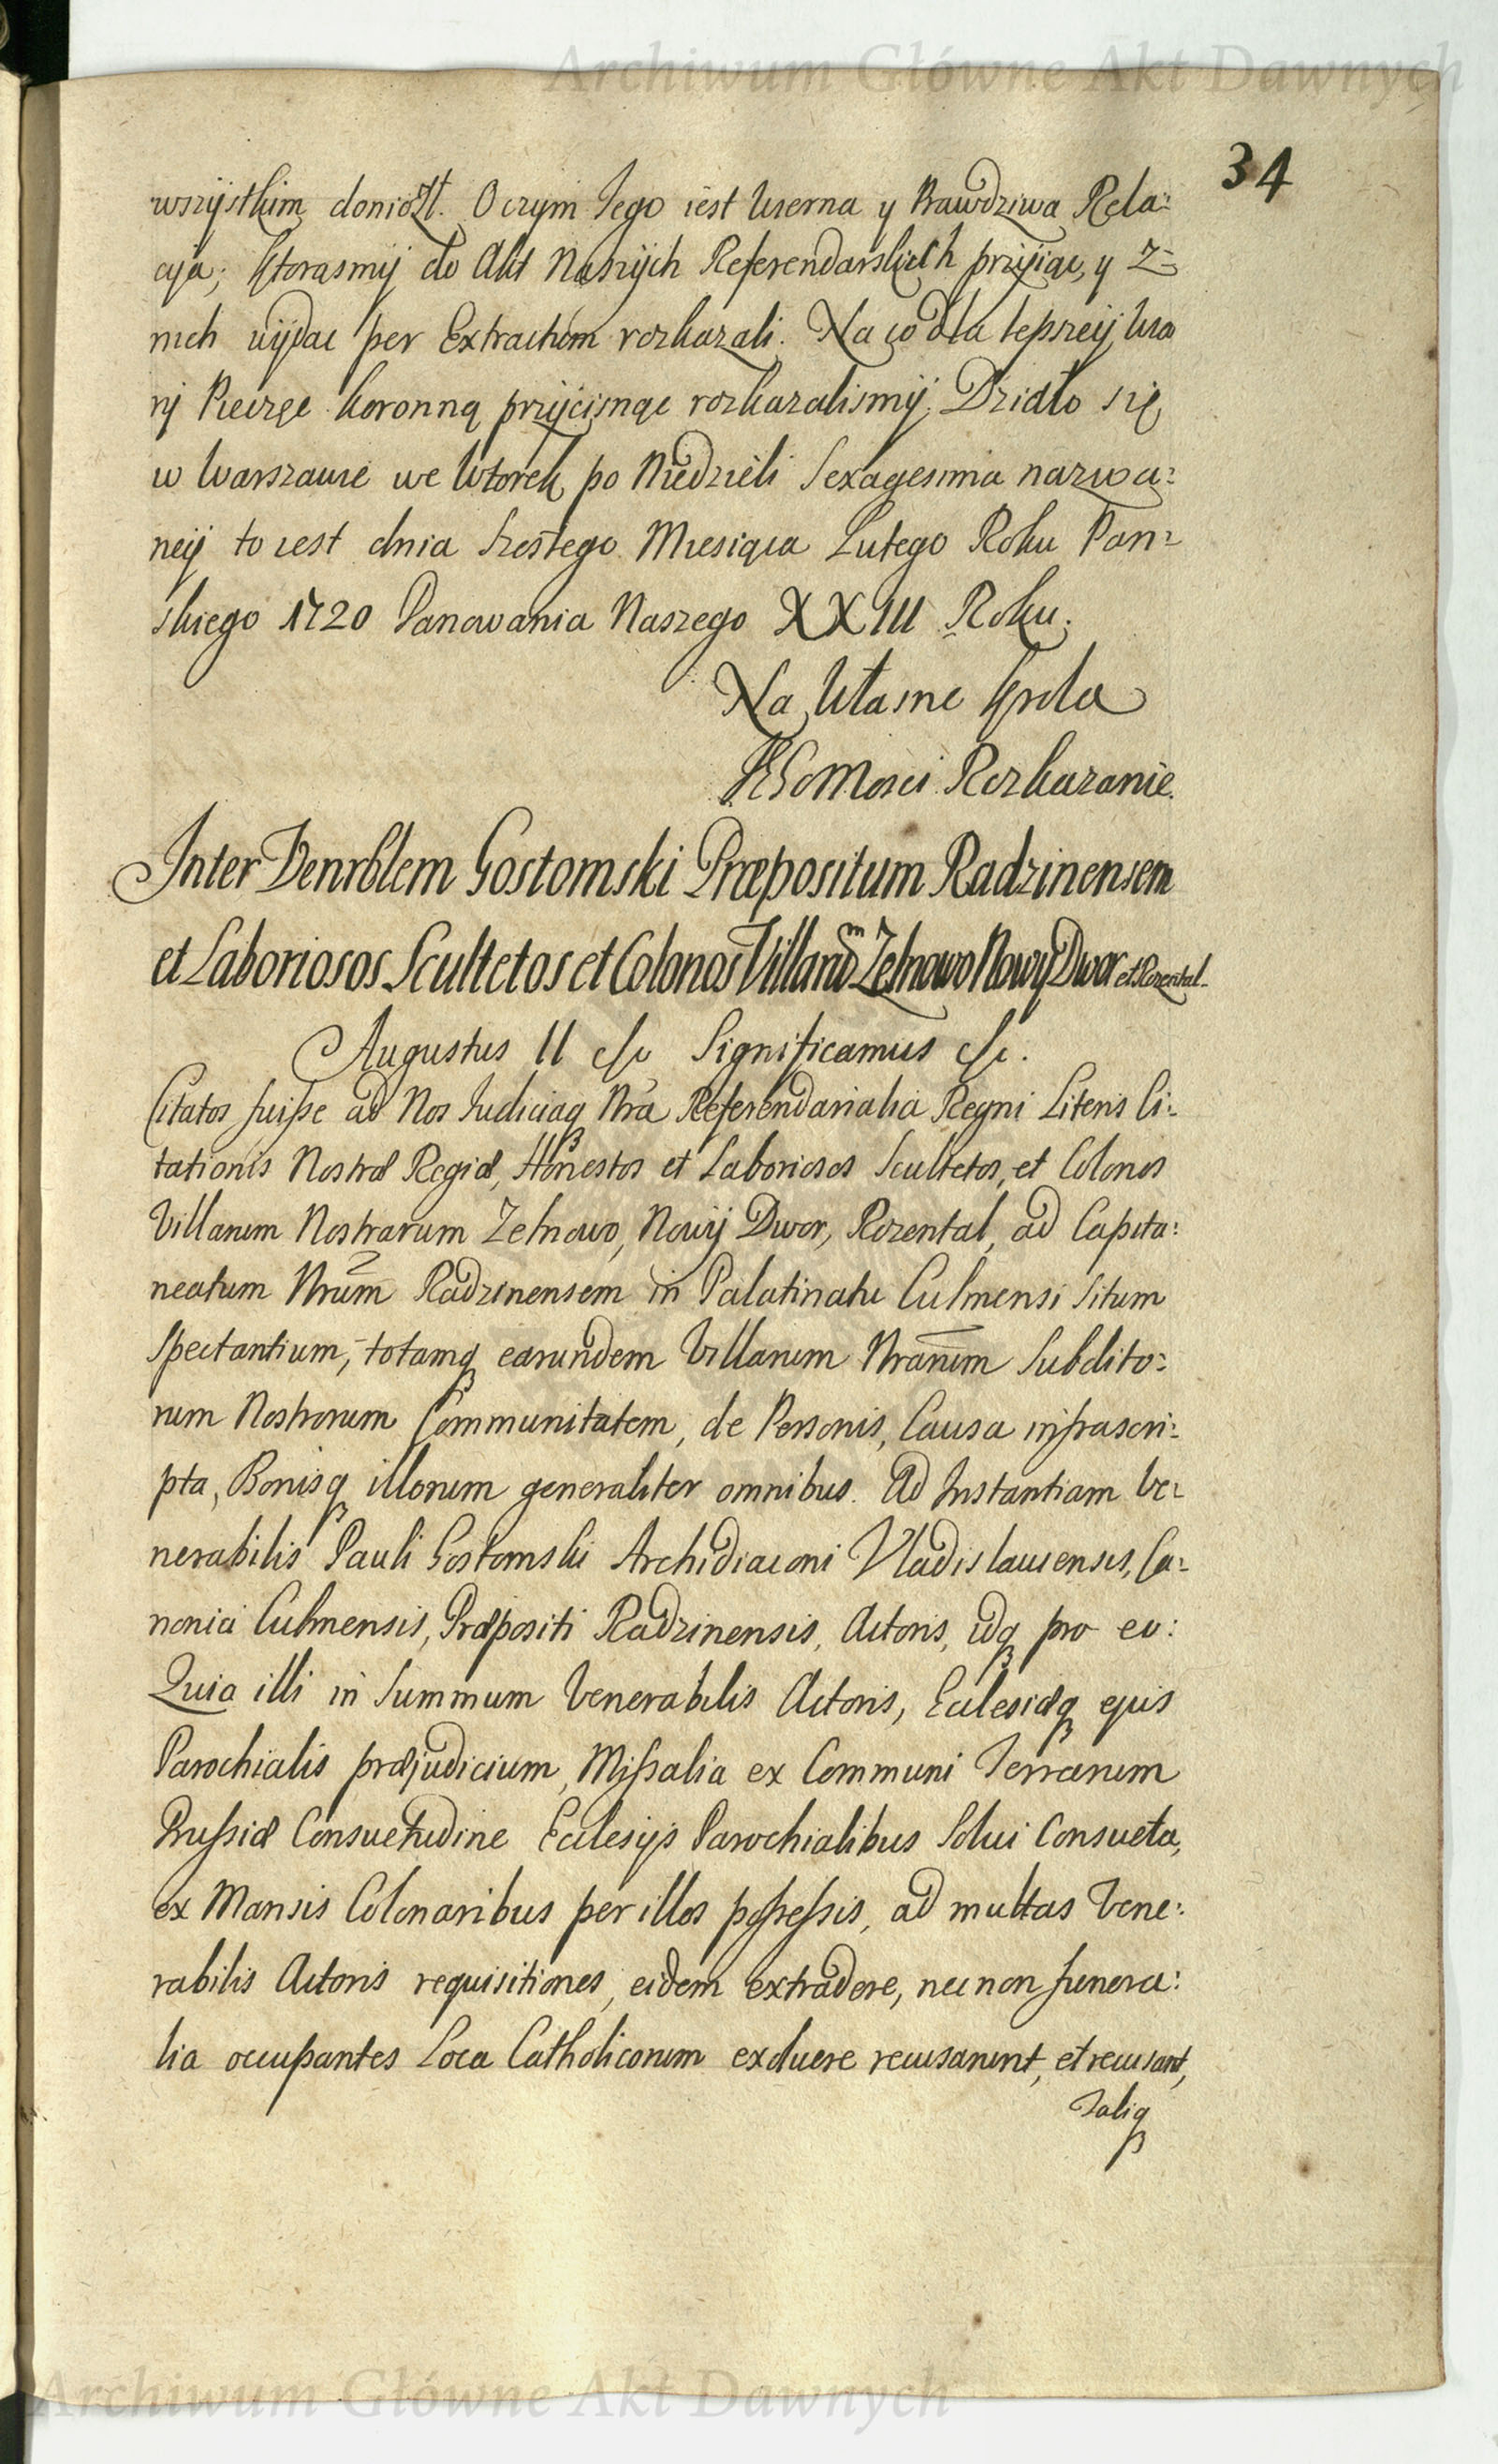 Archiwum Główne Akt Dawnych
34
wszystkim doniozł. O czym Jego iest wierna y Prawdziwa Rela:
cya; ktorasmy do Akt Naszych Referendarskich przyiąc, y Z=
nich wydac per Extractum rozkazali. Na co dla lepszey wia
ry Pieczęc koronną przycisnąc rozkazalismy. Działo się
w Warszawie we Wtorek po Niedzieli Sexagesima nazwa:
ney to iest dnia szostego Miesiąca Lutego Roku Pan=
skiego 1720 Panowania Naszego XXIII Roku.
Na Własne Krola
JEGoMosci Rozkazanie.
Inter Venrblem Gostomski Præpositum Radzinensem
et Laboriosos Scultetos et Colonos Villarum Zelnowo Nowy Dwor et Rozental.
Augustus II etc Significamus etc.
Citatos fuisse ad Nos Judiciaq Nra Referendarialia Regni Literis Ci:
tationis Nostræ Regiæ, Honestos et Laboriosos Scultetos, et Colonos
Villarum Nostrarum Zelnowo, Nowy Dwor, Rozental, ad Capita:
neatum Nrum Radzinensem in Palatinatu Culmensi situm
spectantium, totamq earundem Villarum Nrarum Subdito:
rum Nostrorum Communitatem, de Personis, Causa infrascri:
pta, Bonisq illorum generaliter omnibus. Ad Instantiam Ve:
nerabilis Pauli Gostomski Archidiaconi Vladislaviensis, Ca:
nonici Culmensis, Præpositi Radzinensis, Actoris, idq pro eo:
Quia illi in summum Venerabilis Actoris, Eclesiæq ejus
Parochialis præjudicium, Missalia ex Communi Terrarum
Prussiæ Consuetudine Eclesijs Parochialibus Solui Consueta,
ex Mansis Colonaribus per illos possessis, ad multas Vene:
rabilis Actoris requisitiones, eidem extradere, nec non funera:
lia occupantes Loca Catholicorum exoluere recusarunt, et recusant,
Taliq
Archiwum Główne Akt Dawnych